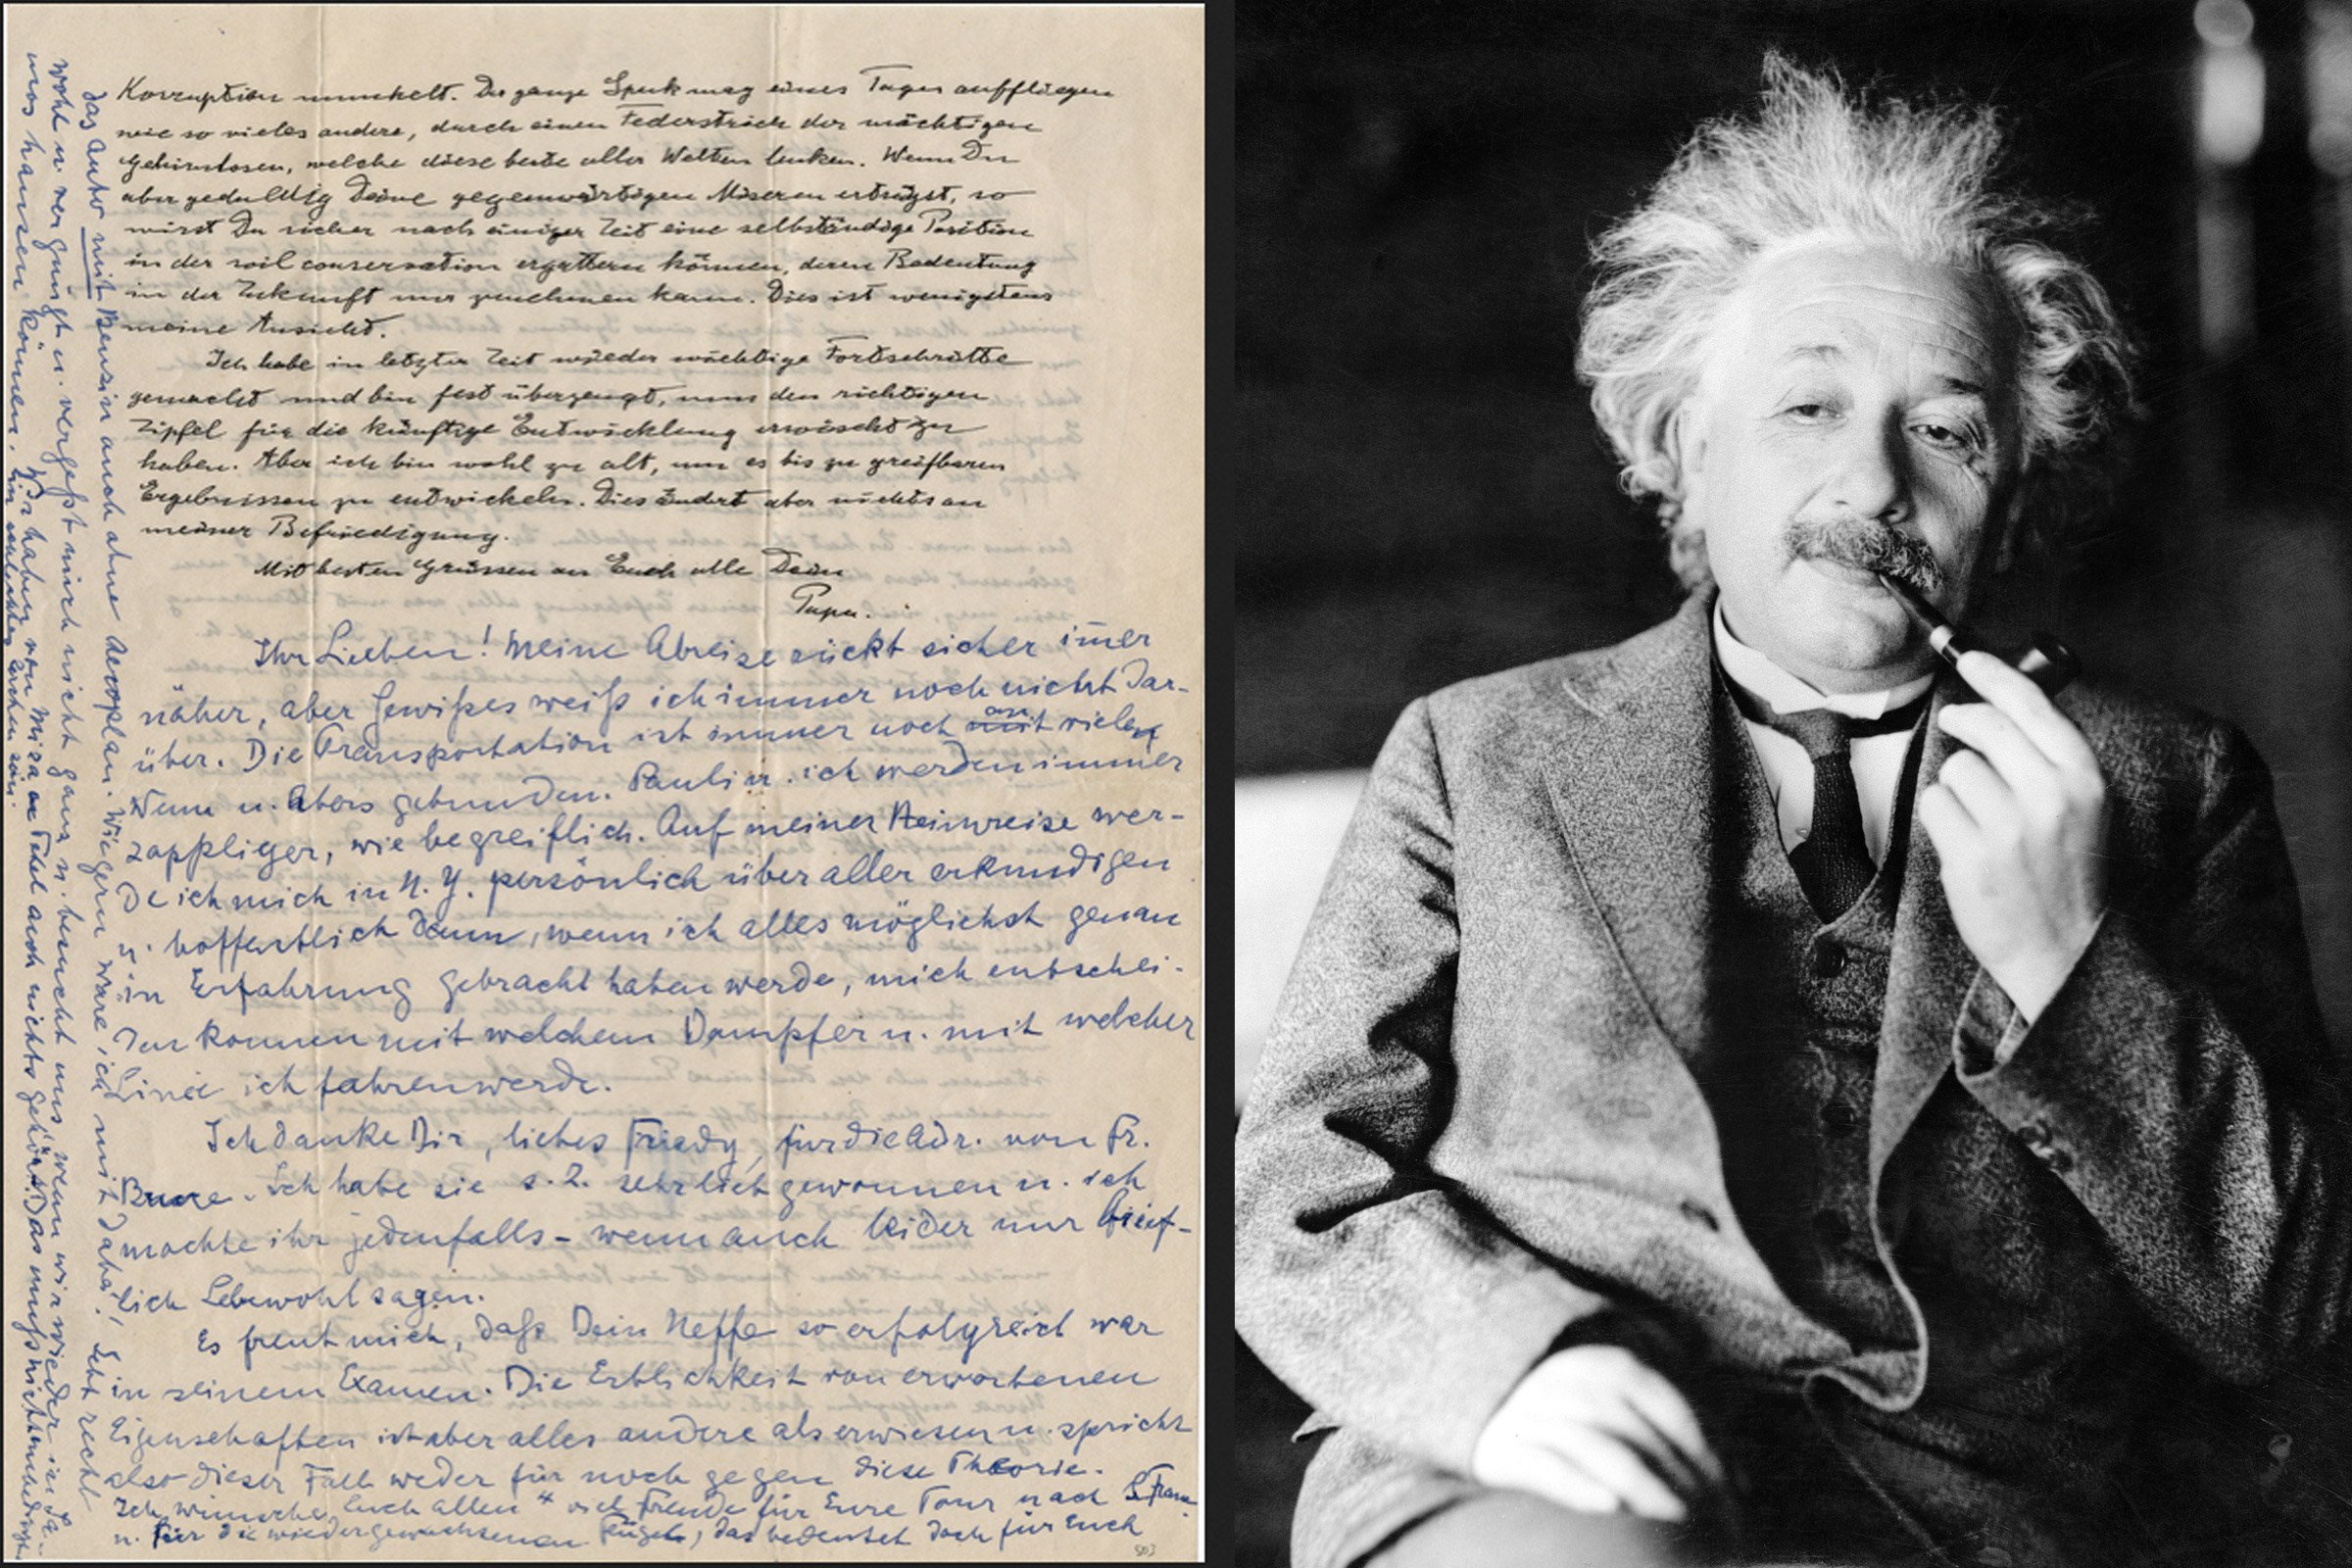 Korruption munkelt. Der ganze Spuk mag eines Tages auffliegen
wie so vieles andere, durch einen Federstrich der mächtigen
Gehirnlosen, welche diese beste aller Welten lenken. Wenn Du
aber geduldig Deine gegenwärtigen Miseren erträgst, so
wirst Du sicher nach einiger Zeit eine selbständige Position
in der soil conservation ergattern können, deren Bedeutung
in der Zukunft nur zunehmen kann. Dies ist wenigstens
meine Ansicht.
Ich habe in letzter Zeit wieder wichtige Fortschritte
gemacht und bin fest überzeugt, nun den richtigen
Zipfel für die künftige Entwicklung erwischt zu
haben. Aber ich bin wohl zu alt, um es bis zu greifbaren
Ergebnissen zu entwickeln. Dies ändert aber nichts an
meiner Befriedigung.
Mit besten Grüssen an Euch alle Dein
Papa.
Ihr Lieben! Meine Abreise rückt sicher im̄er
näher, aber Gewißes weiß ich immer noch nicht dar-
über. Die Transportation ist immer noch an vielen
Wenn u. Abers gebunden. Pauli u. ich werden immer
zappliger, wie begreiflich. Auf meiner Heimreise wer-
de ich mich in N. Y. persönlich über aller erkundigen
u. hoffentlich dann, wenn ich alles möglichst genau
in Erfahrung gebracht haben werde, mich entschei-
den können mit welchem Dampfer u. mit welcher
Linie ich fahren werde.
Ich danke Dir, liebes Friedy, für die Adr. von Fr.
Ich habe sie s. Z. sehr lieb gewonnen u. ich
möchte ihr jedenfalls – wenn auch leider nur brief-
lich Lebewohl sagen.
Es freut mich, daß Dein Neffe so erfolgreich war
in seinem Examen. Die Erblichkeit von erworbenen
Eigenschaften ist aber alles andere als erwiesen u. spricht
also dieser Fall weder für noch gegen diese Theorie.
Ich wünsche Euch allen 4 viel Freude für Eure Tour nach S. Fran.
u. für die wiedergewachsenen Flügel, das bedeutet doch für Euch
das Auto mit Benzin auch ohne Aeroplan. Wie gern wäre ich mit dabei! Lebt recht
wohl u. vergnügt u. vergeßt mich nicht ganz u. besucht uns wenn wir wieder in
was hausen können. Wir haben von Miza u. Titel auch nichts gehört. Das muß nicht unbedingt